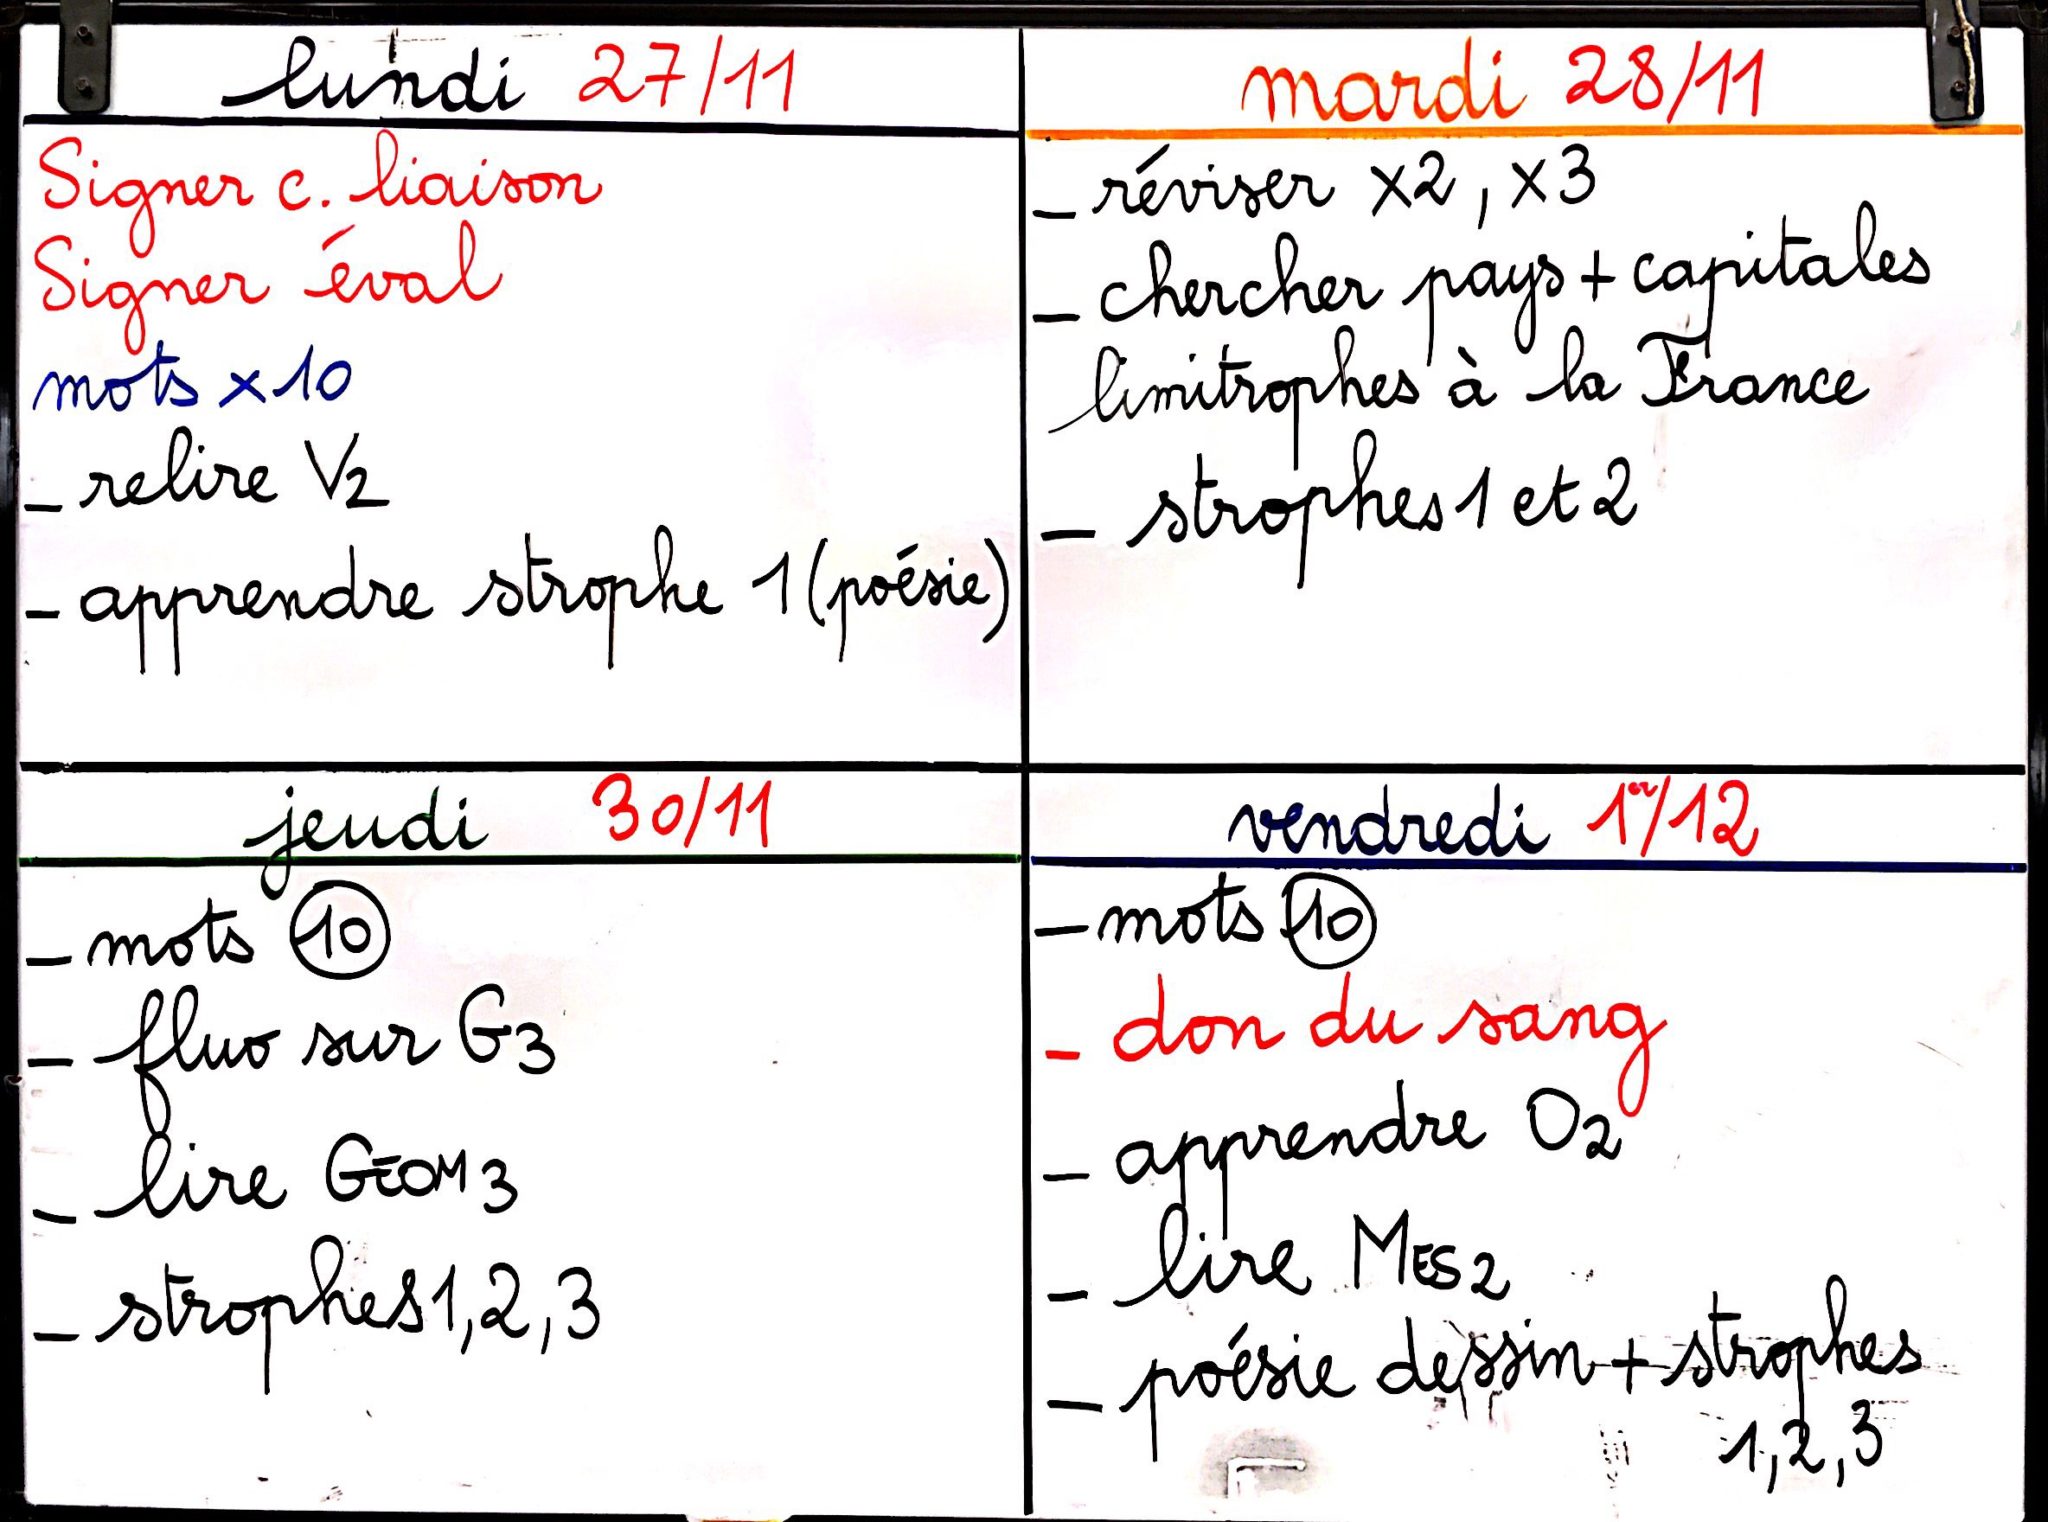 lundi 27/11
Signer c. liaison
Signer éval
mots x10
- relire V2
- apprendre strophe 1 (poésie)
mardi 28/11
- réviser x2, x3
- chercher pays + capitales
limitrophes à la France
- strophes 1 et 2
jeudi 30/11
- mots 10
- fluo sur G3
- lire GÉOM3
- strophes 1, 2, 3
vendredi 1er/12
- mots 10
- don du sang
- apprendre O2
- lire MES2
- poésie dessin + strophes
1, 2, 3